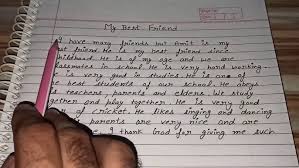 My Best Friend
I have many friends but Amit is my
friend. He is my best friend since
childhood. He is of my age and we are
classmates in school. He is very hard working.
He is very good in studies. He is one of
best students of our school. He obeys
teachers, parents and elders. We study
together and play together. He is very good
of cricket. He likes singing and dancing
parents are very nice and are
I thank God for giving me such